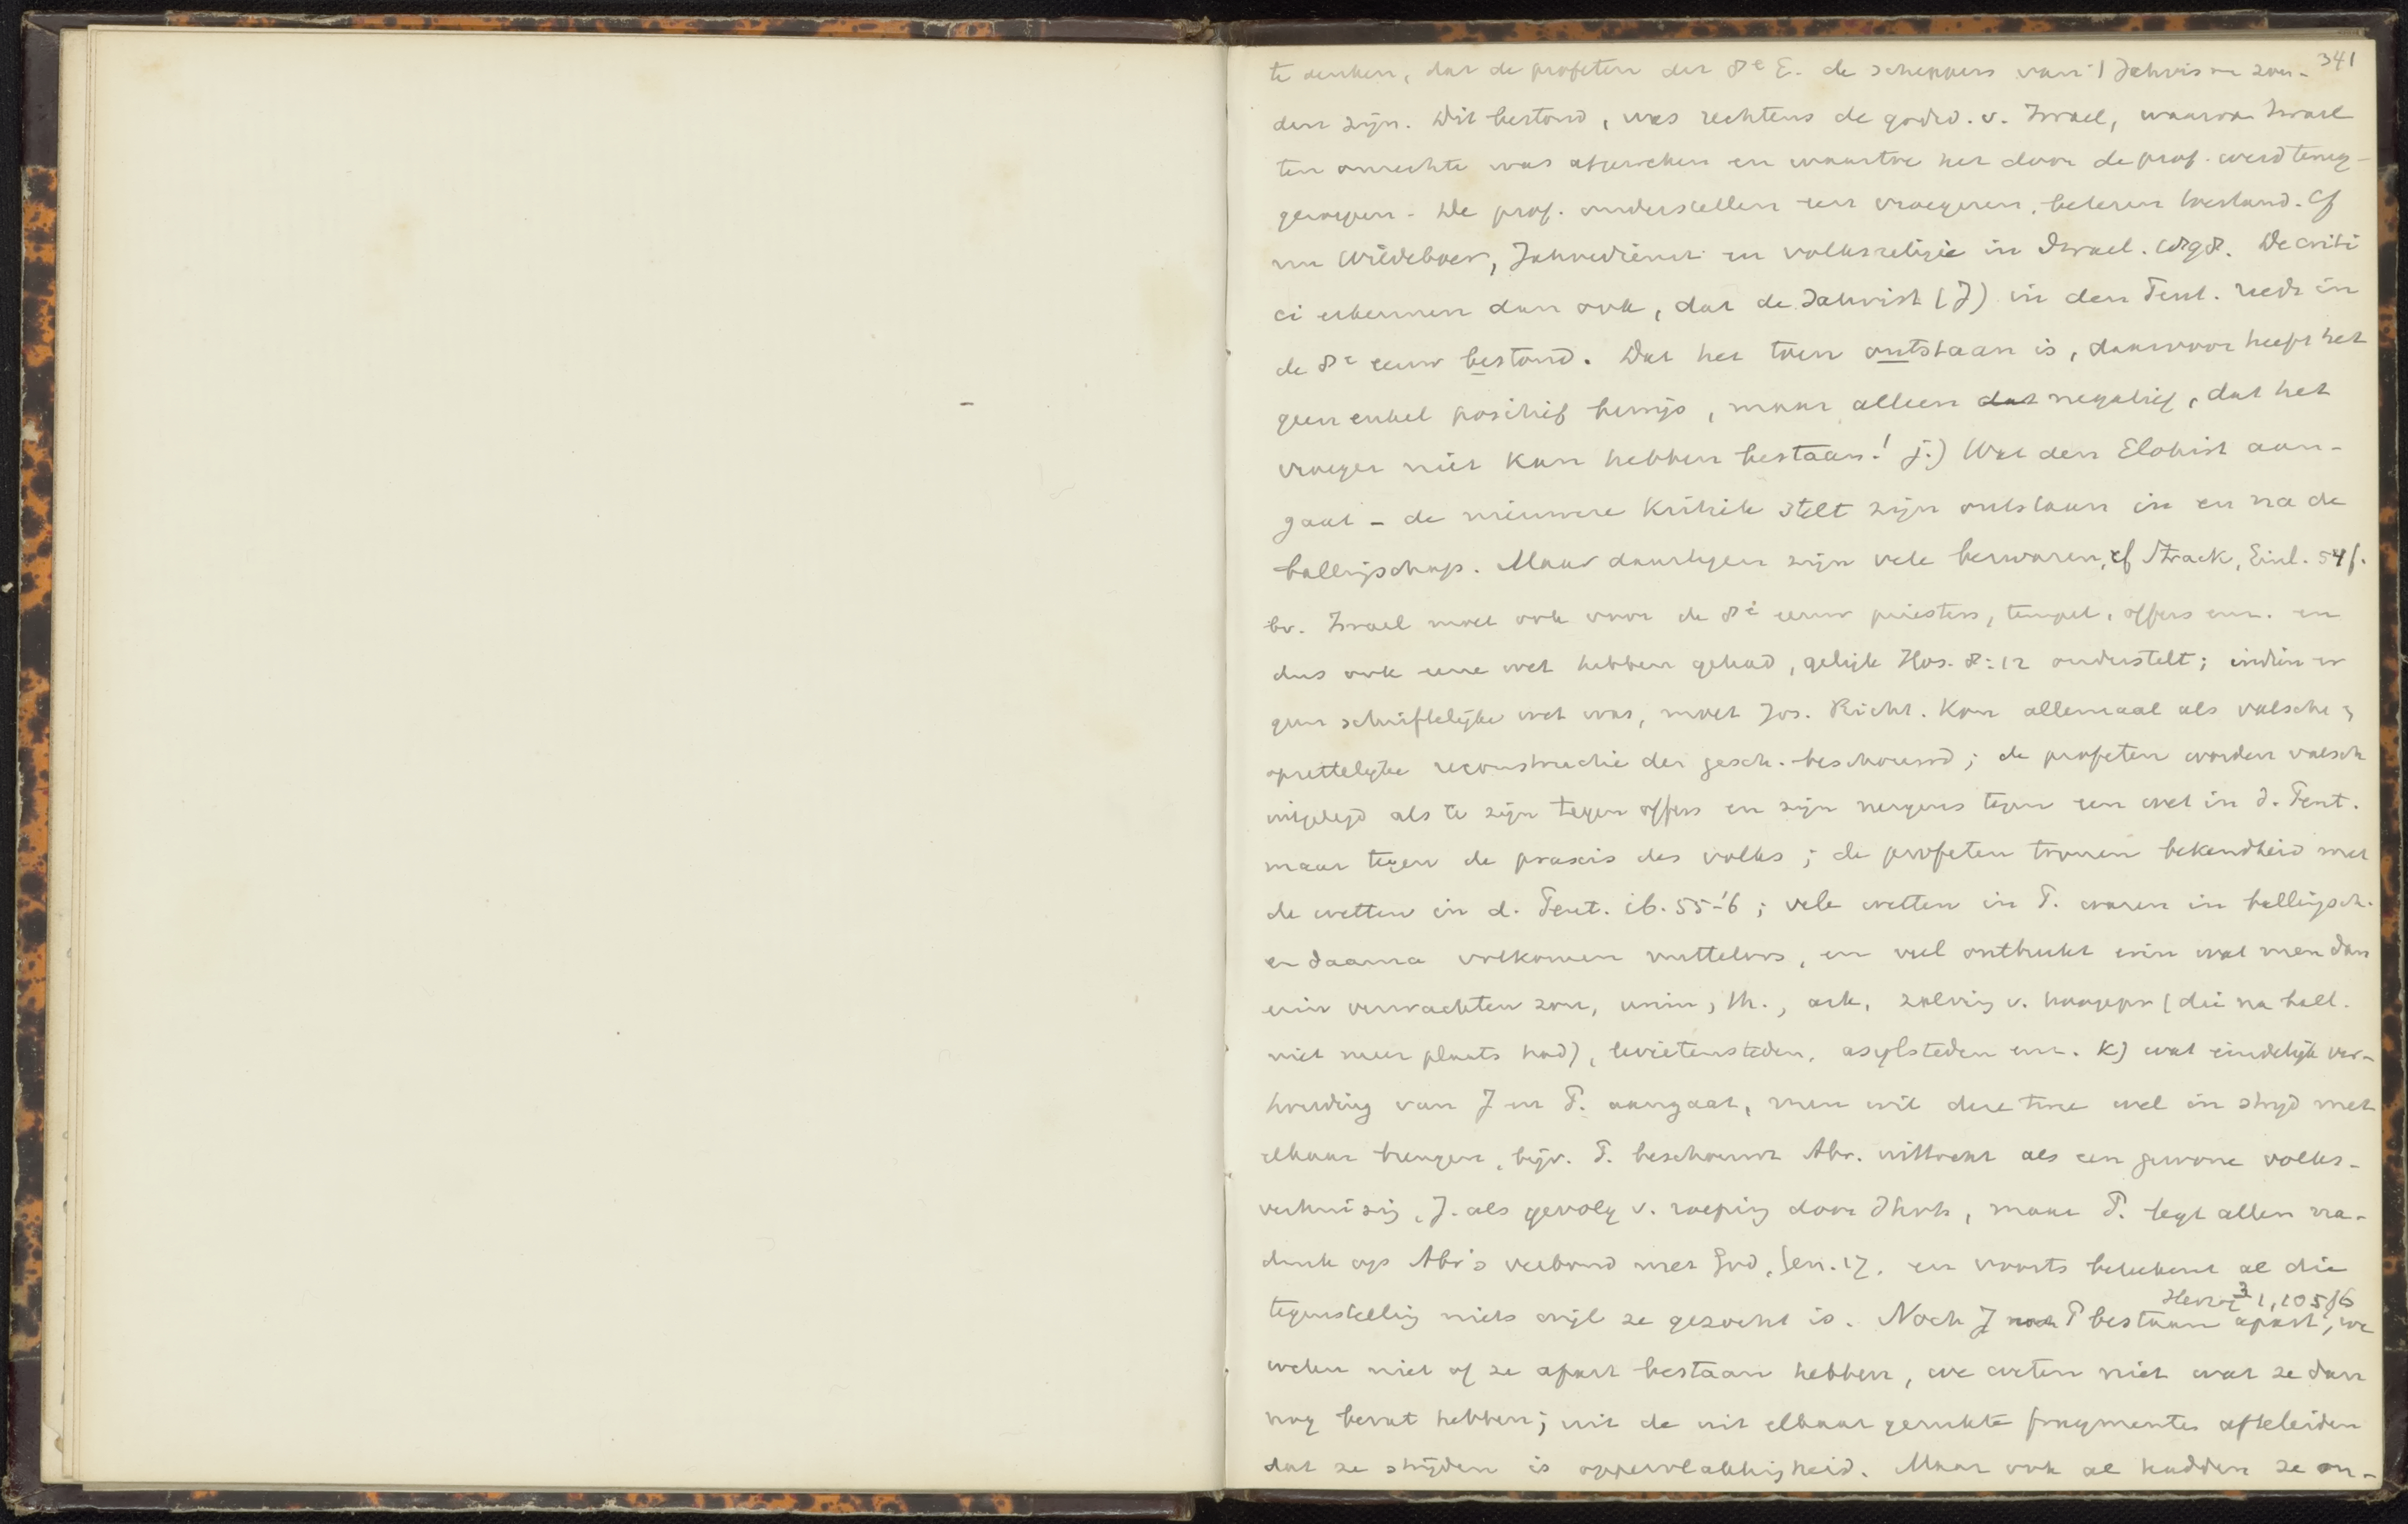 341
te denken, dat de profeten der 8e E. de scheppers van 't Jahvisme zou-
den zijn. Dit bestond, was rechtens de godsd. v. Israel, waarvan Israel
ten onrechte was afgeweken en waartoe het door de prof. werd terug-
geroepen. De prof. onderstellen een vroegeren, beteren toestand. Cf
nu Wildeboer, Jahvedienst en volksreligie in Israel. 1898. De criti
ci erkennen dan ook, dat de Jahvist (J) in den Pent. reeds in
de 8e eeuw bestond. Dat het toen ontstaan is, daarvoor heeft het
geen enkel positief bewijs, maar alleen dat negatief, dat het
vroeger niet kan hebben bestaan! j.) Wat den Elohist aan-
gaat – de nieuwere kritiek stelt zijn ontstaan in en na de
ballingschap. Maar daartegen zijn vele bezwaren, cf Strack, Einl. 54f.
bv. Israel moet ook voor de 8e eeuw priesters, tempel, offers enz. en
dus ook eene wet hebben gehad, gelijk Hos. 8:12 onderstelt; indien er
geen schriftelijke wet was, moet Jos. Richt. Kon allemaal als valsche,
opzettelijke reconstructie der gesch. beschouwd; de profeten worden valsch
uitgelegd als te zijn tegen offers en zijn nergens tegen een wet in d. Pent.
maar tegen de praxis des volks; de profeten toonen bekendheid met
de wetten in d. Pent. ib. 55-'6; vele wetten in P. waren in ballingsch.
en daarna volkomen nutteloos, en veel ontbreekt erin wat men dan
erin verwachten zou, urim, th., ark, zalving v. hoogepr (die na ball.
niet meer plaats had), levietensteden, asylsteden enz. k) wat eindelijk ver-
houding van J en P. aangaat, men wil deze twee wel in strijd met
elkaar brengen, bijv. P. beschouwt Abr. uittocht als een gewone volks-
verhuizing, J. als gevolg v. roeping door Jhvh, maar P. legt allen na-
druk op Abr's verbond met God, Gen. 17. en voorts beteekent al die
tegenstelling niets wijl ze gezocht is. Noch J noch P bestaan apart, we
Herzog3 1,105/6
weten niet of ze apart bestaan hebben, we weten niet wat ze dan
nog bevat hebben; uit de uit elkaar gerukte fragmenten afteleiden
dat ze strijden is oppervlakkigheid. Maar ook al hadden ze on-